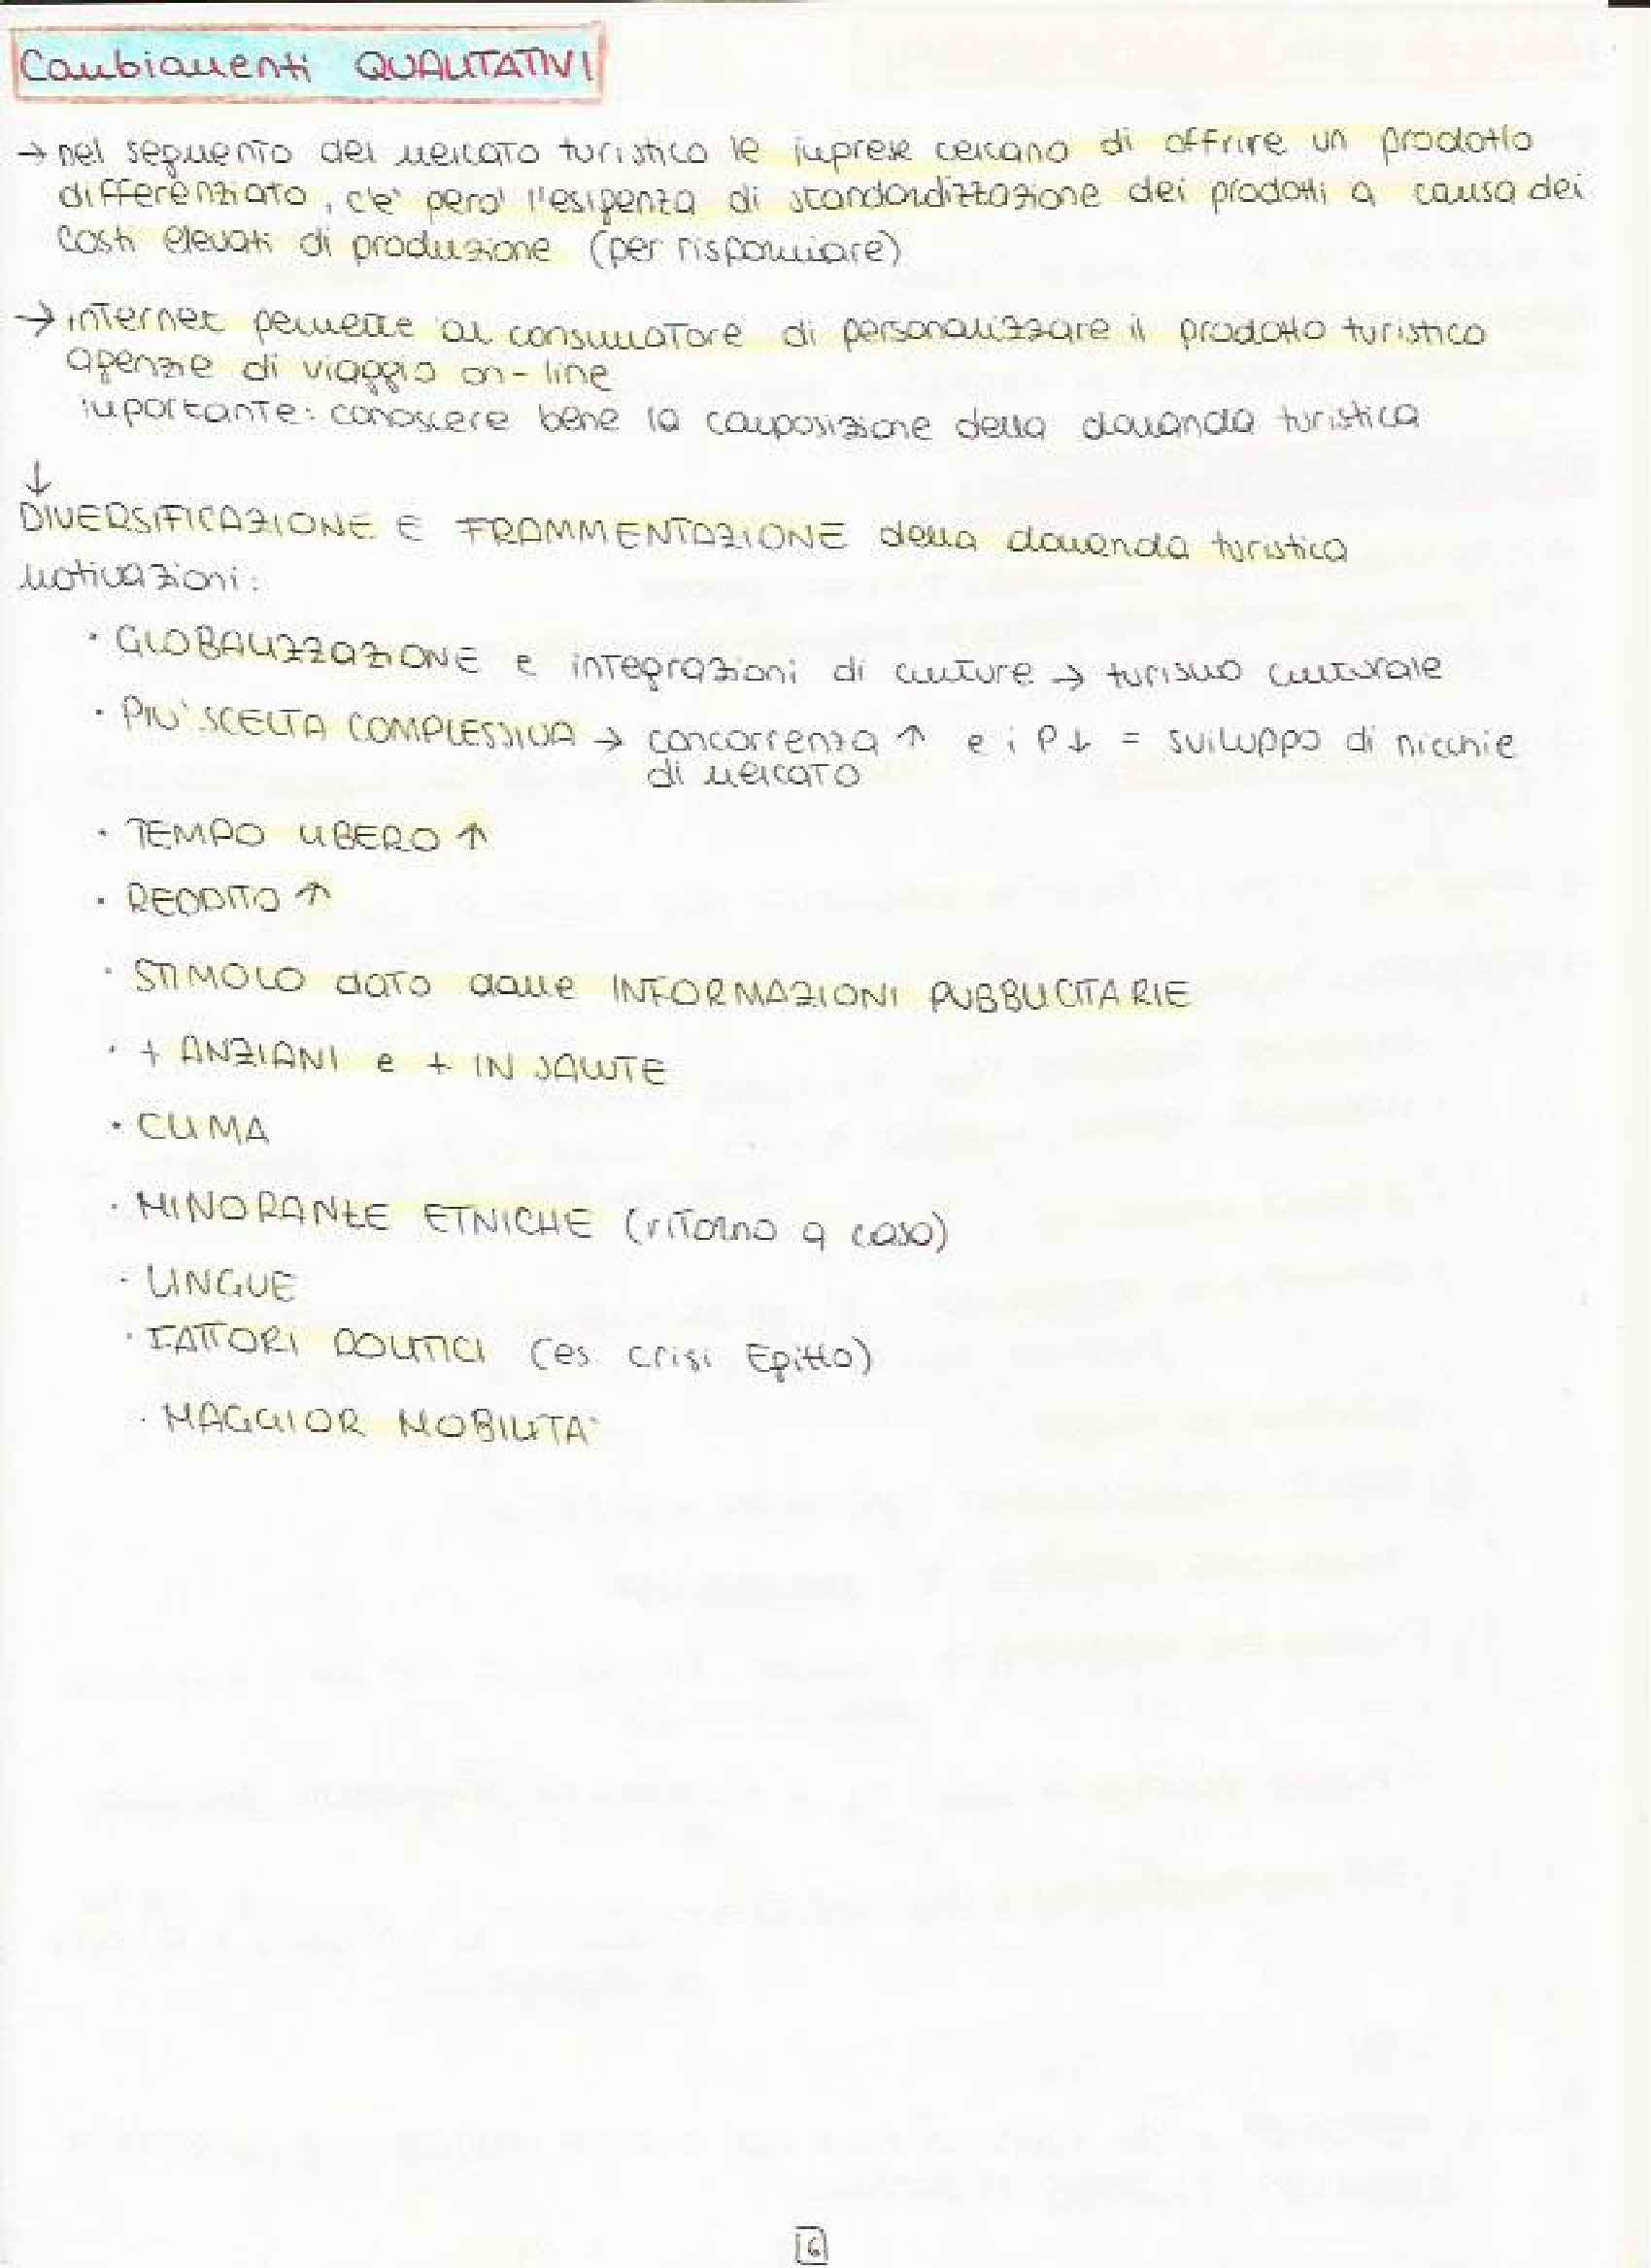 Cambiamenti QUALITATIVI
→ nel segmento del mercato turistico le imprese cercano di offrire un prodotto
differenziato, c'è però l'esigenza di standardizzazione dei prodotti a causa dei
costi elevati di produzione (per risparmiare)
→ internet permette al consumatore di personalizzare il prodotto turistico
agenzie di viaggio on-line
importante: conoscere bene la composizione della domanda turistica
↓
DIVERSIFICAZIONE E FRAMMENTAZIONE della domanda turistica
motivazioni:
· GLOBALIZZAZIONE e integrazioni di culture → turismo culturale
· PIU' SCELTA COMPLESSIVA → concorrenza ↑ e i P ↓ = sviluppo di nicchie
di mercato
· TEMPO LIBERO ↑
· REDDITO ↑
· STIMOLO dato dalle INFORMAZIONI PUBBLICITARIE
· + ANZIANI e + IN SALUTE
· CLIMA
· MINORANZE ETNICHE (ritorno a casa)
· LINGUE
· FATTORI POLITICI (es. crisi Egitto)
· MAGGIOR MOBILITA'
6